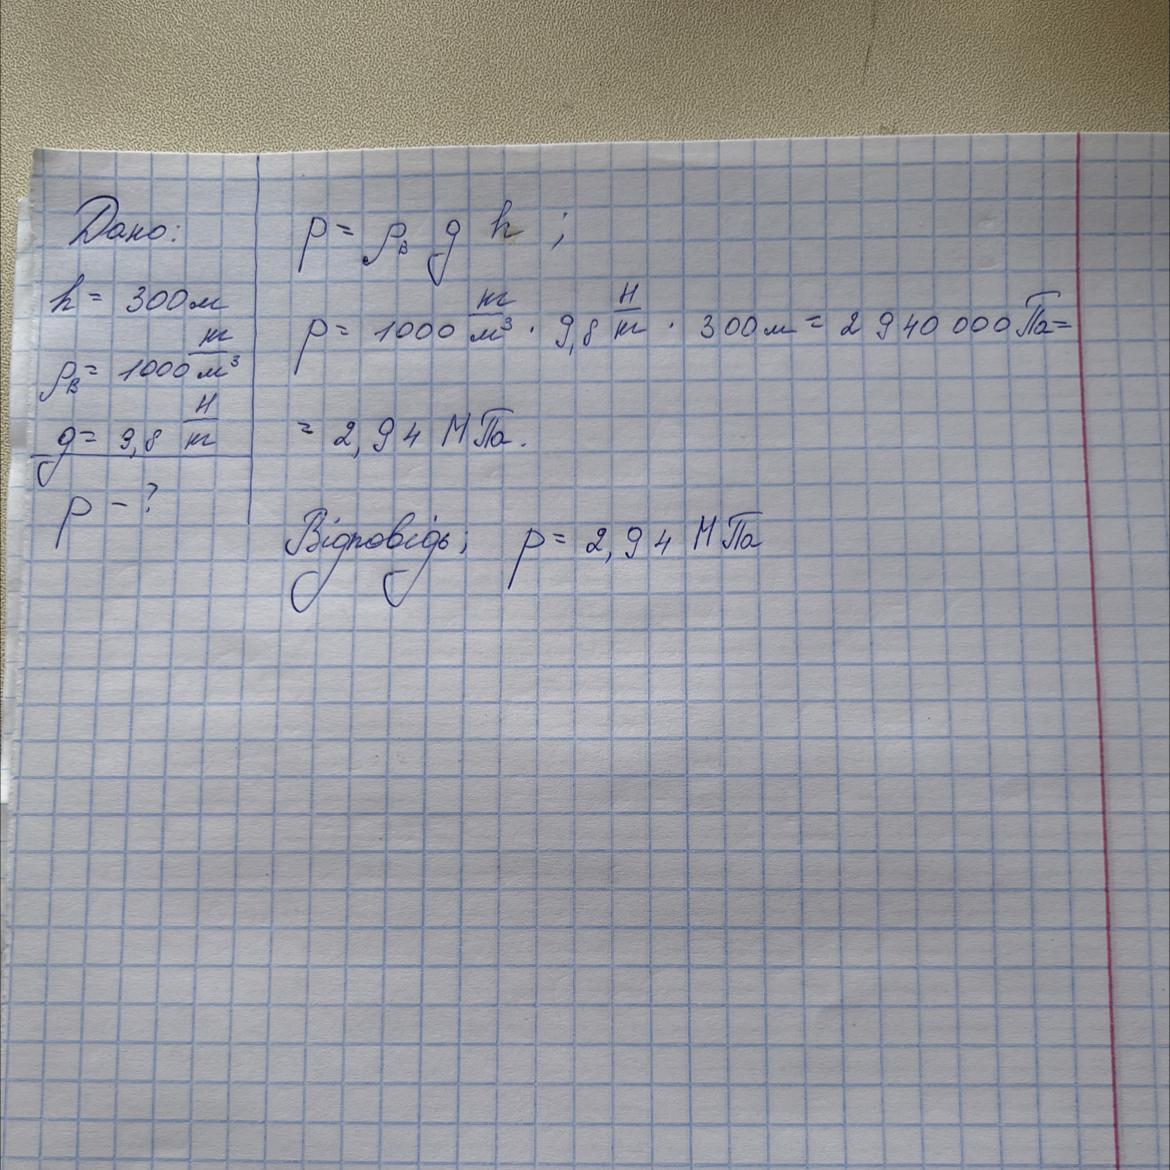 Дано:
h = 300 м
ρв = 1000 кг/м³
g = 9,8 Н/кг
p - ?
p = ρв g h ;
p = 1000 кг/м³ · 9,8 Н/кг · 300 м = 2 940 000 Па =
= 2,94 МПа.
Відповідь; p = 2,94 МПа